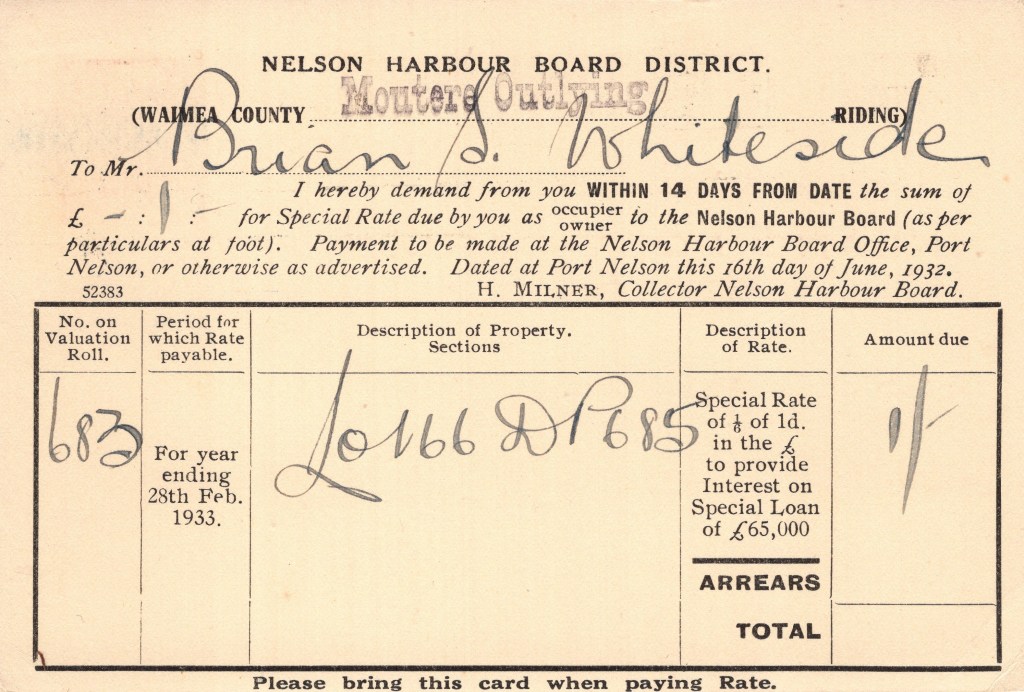 NELSON HARBOUR BOARD DISTRICT.
(WAIMEA COUNTY Moutere Outlying RIDING)
To Mr. Brian S. Whiteside.
I hereby demand from you WITHIN 14 DAYS FROM DATE the sum of
£ - : 1 : - for Special Rate due by you as occupier owner to the Nelson Harbour Board (as per
particulars at foot). Payment to be made at the Nelson Harbour Board Office, Port
Nelson, or otherwise as advertised. Dated at Port Nelson this 16th day of June, 1932.
52383 H. MILNER, Collector Nelson Harbour Board.
No. on
Valuation
Roll.
683
Period for
which Rate
payable.
For year
ending
28th Feb.
1933.
Description of Property.
Sections
Lot 66 DP 685
Description
of Rate.
Special Rate
of 1/6 of 1d.
in the £
to provide
Interest on
Special Loan
of £65,000
ARREARS
TOTAL
Amount due
1/-
Please bring this card when paying Rate.